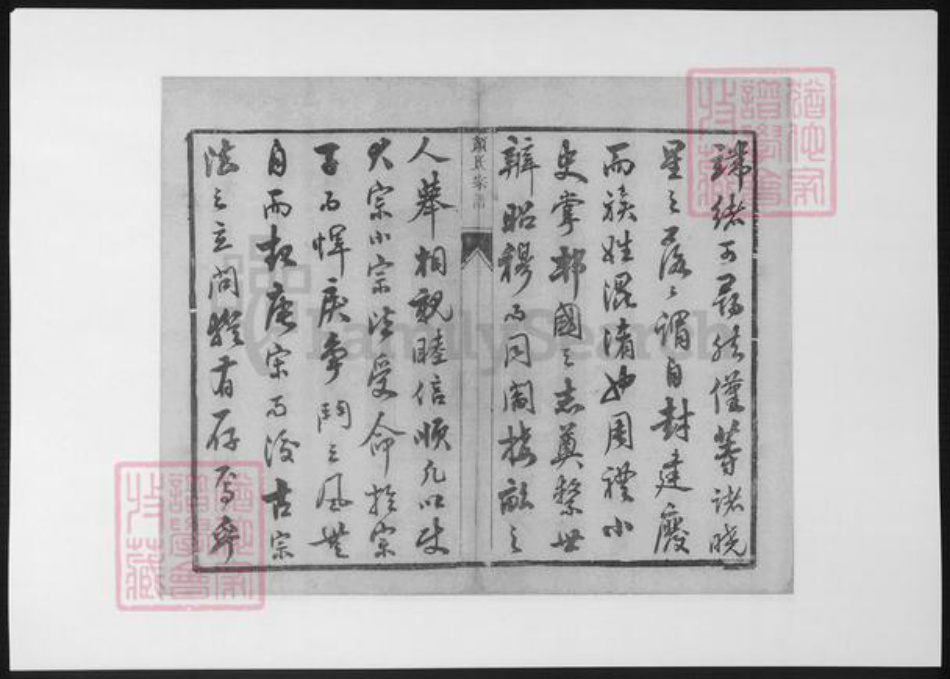 端緒可尋然僅等諸曉
星之落落謂自封建廢
而族姓混淆也周禮小
史掌邦國之志奠繫世
辨昭穆而同閈接畝之
顏氏宗譜
人舉相親睦信順凡以使
大宗小宗法受命於宗
子而悍戾爭鬥之風無
自而起唐宋而後古宗
法之立間猶有存焉舉
猶他家
譜學會
收藏
猶他家
譜學會
收藏
FamilySearch